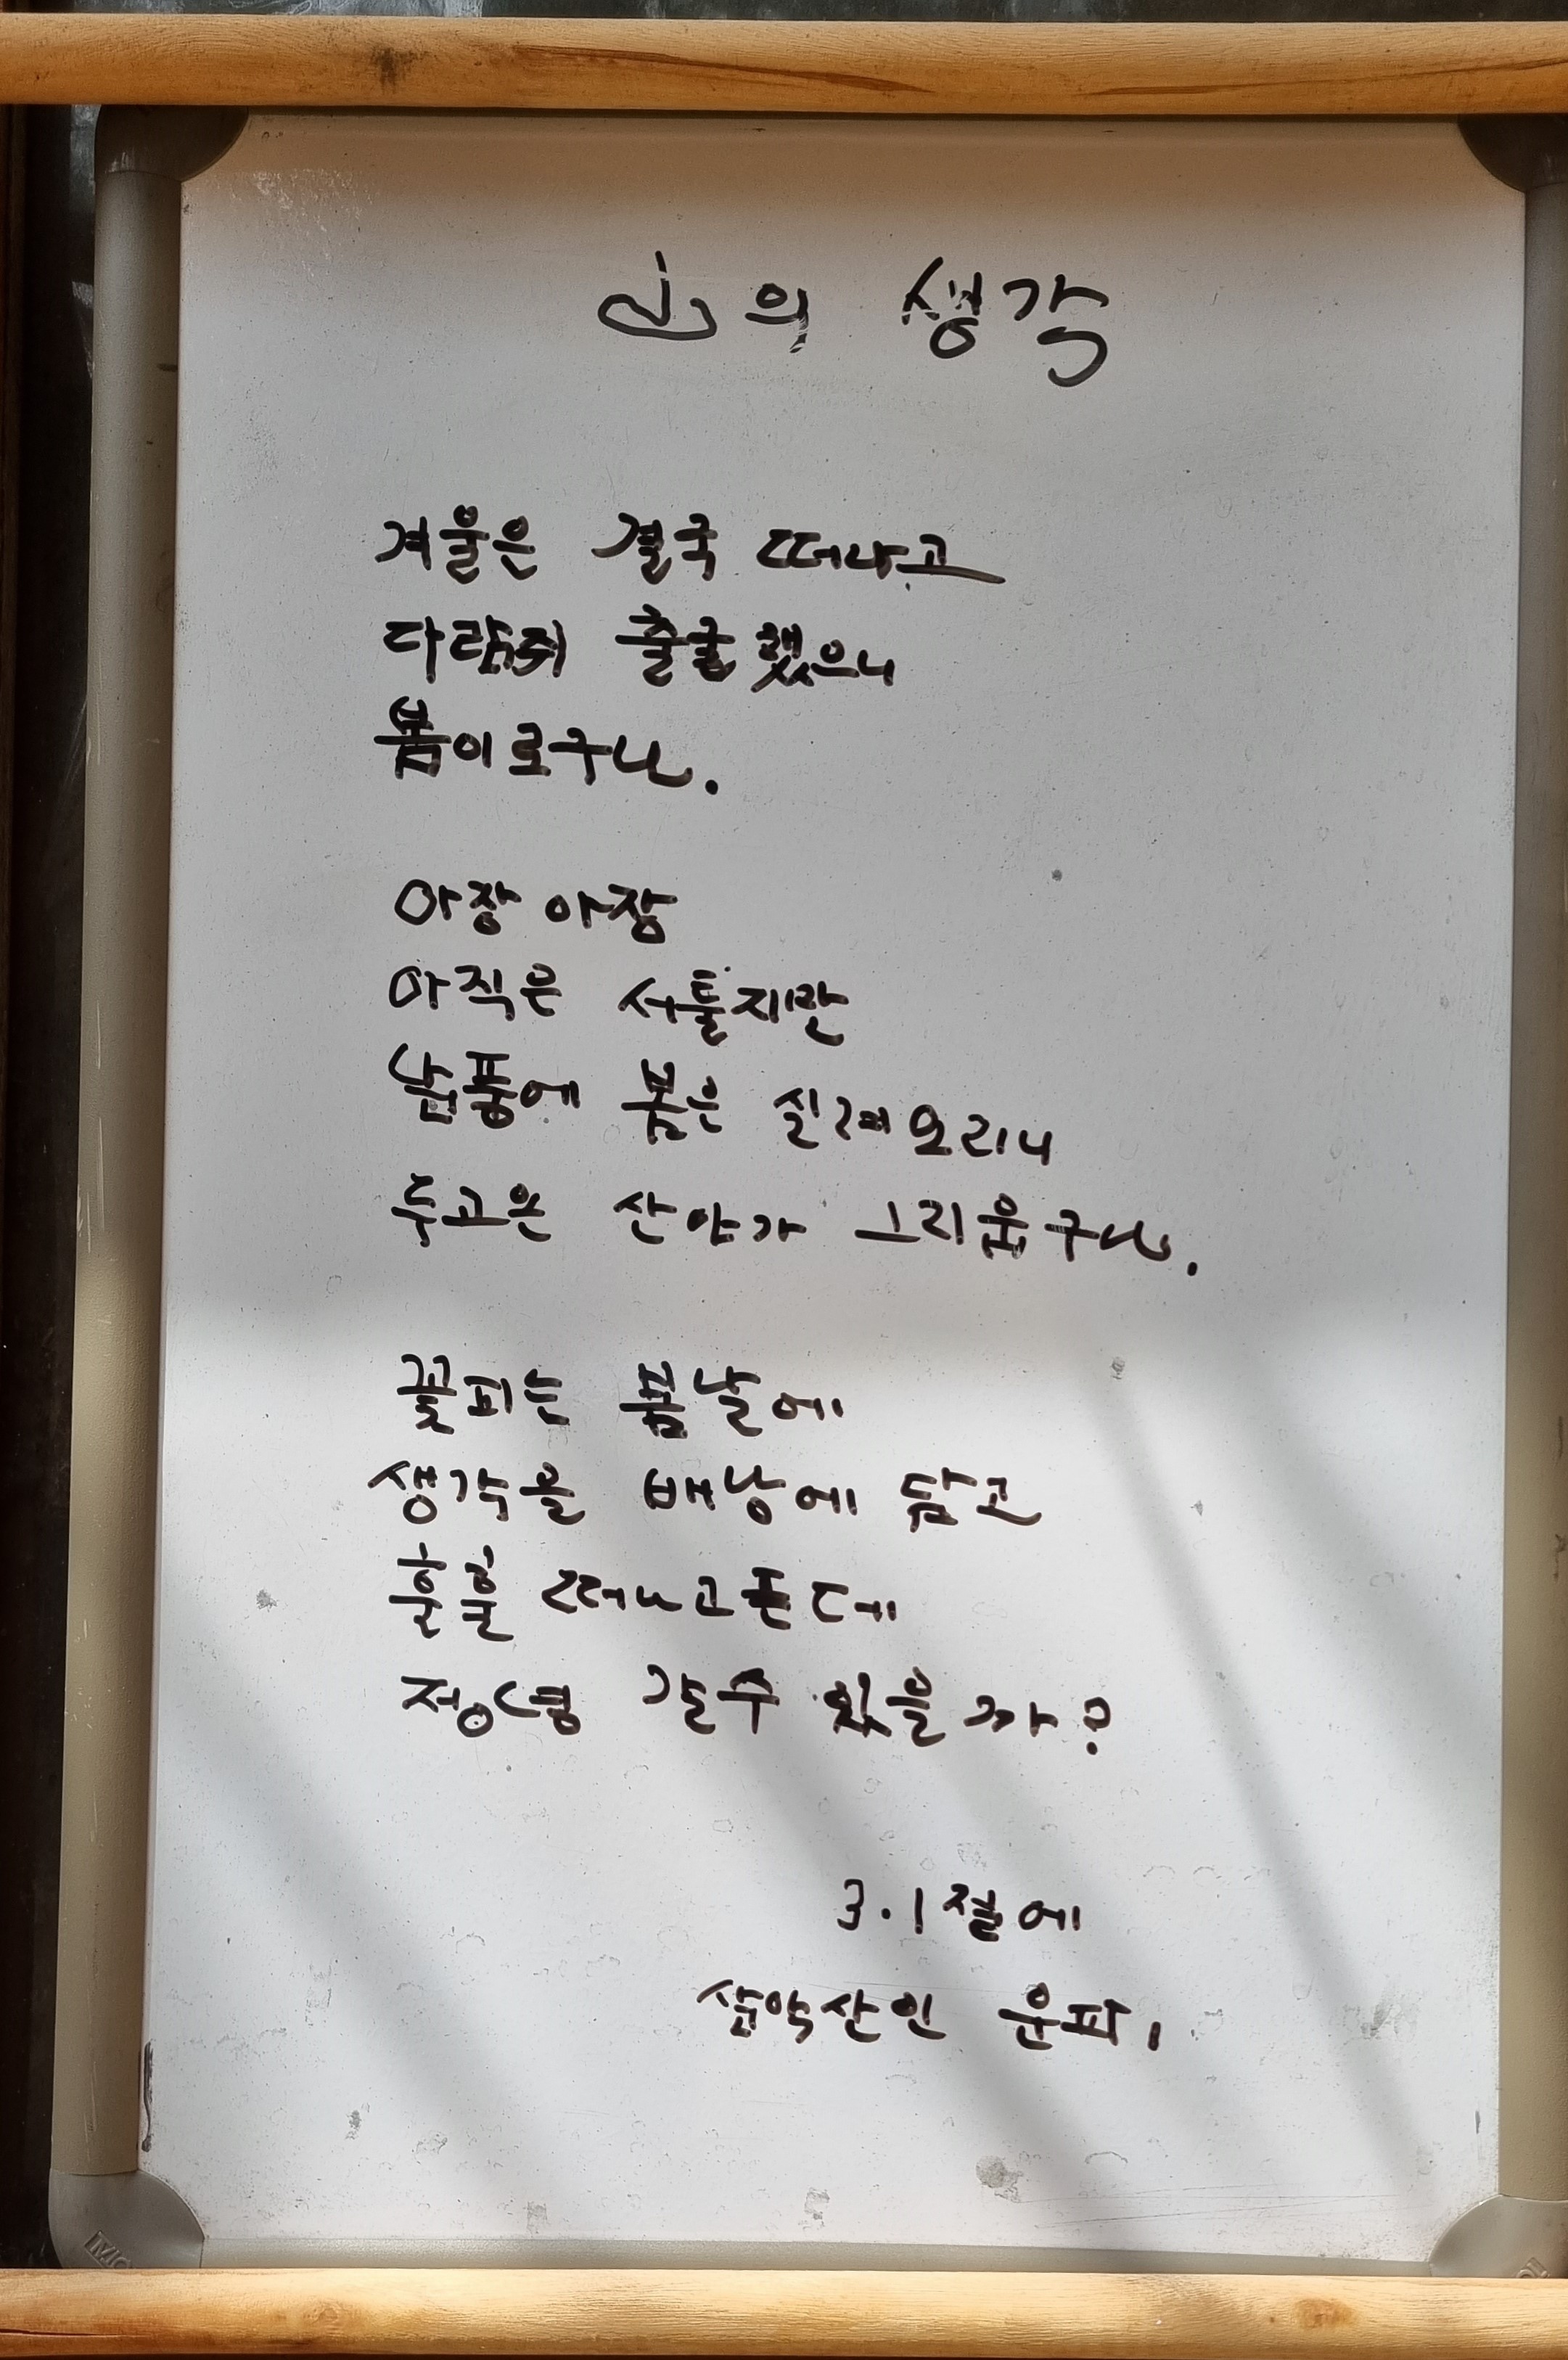 山의 생각
겨울은 결국 떠나고
다람쥐 출굴했으니
봄이로구나.
아장 아장
아직은 서툴지만
남풍에 봄은 실려오리니
두고온 산야가 그리웁구나.
꽃피는 봄날에
생각을 배낭에 담고
훌훌 떠나고픈데
정녕 갈수 있을까?
3.1절에
삼악산인 운파